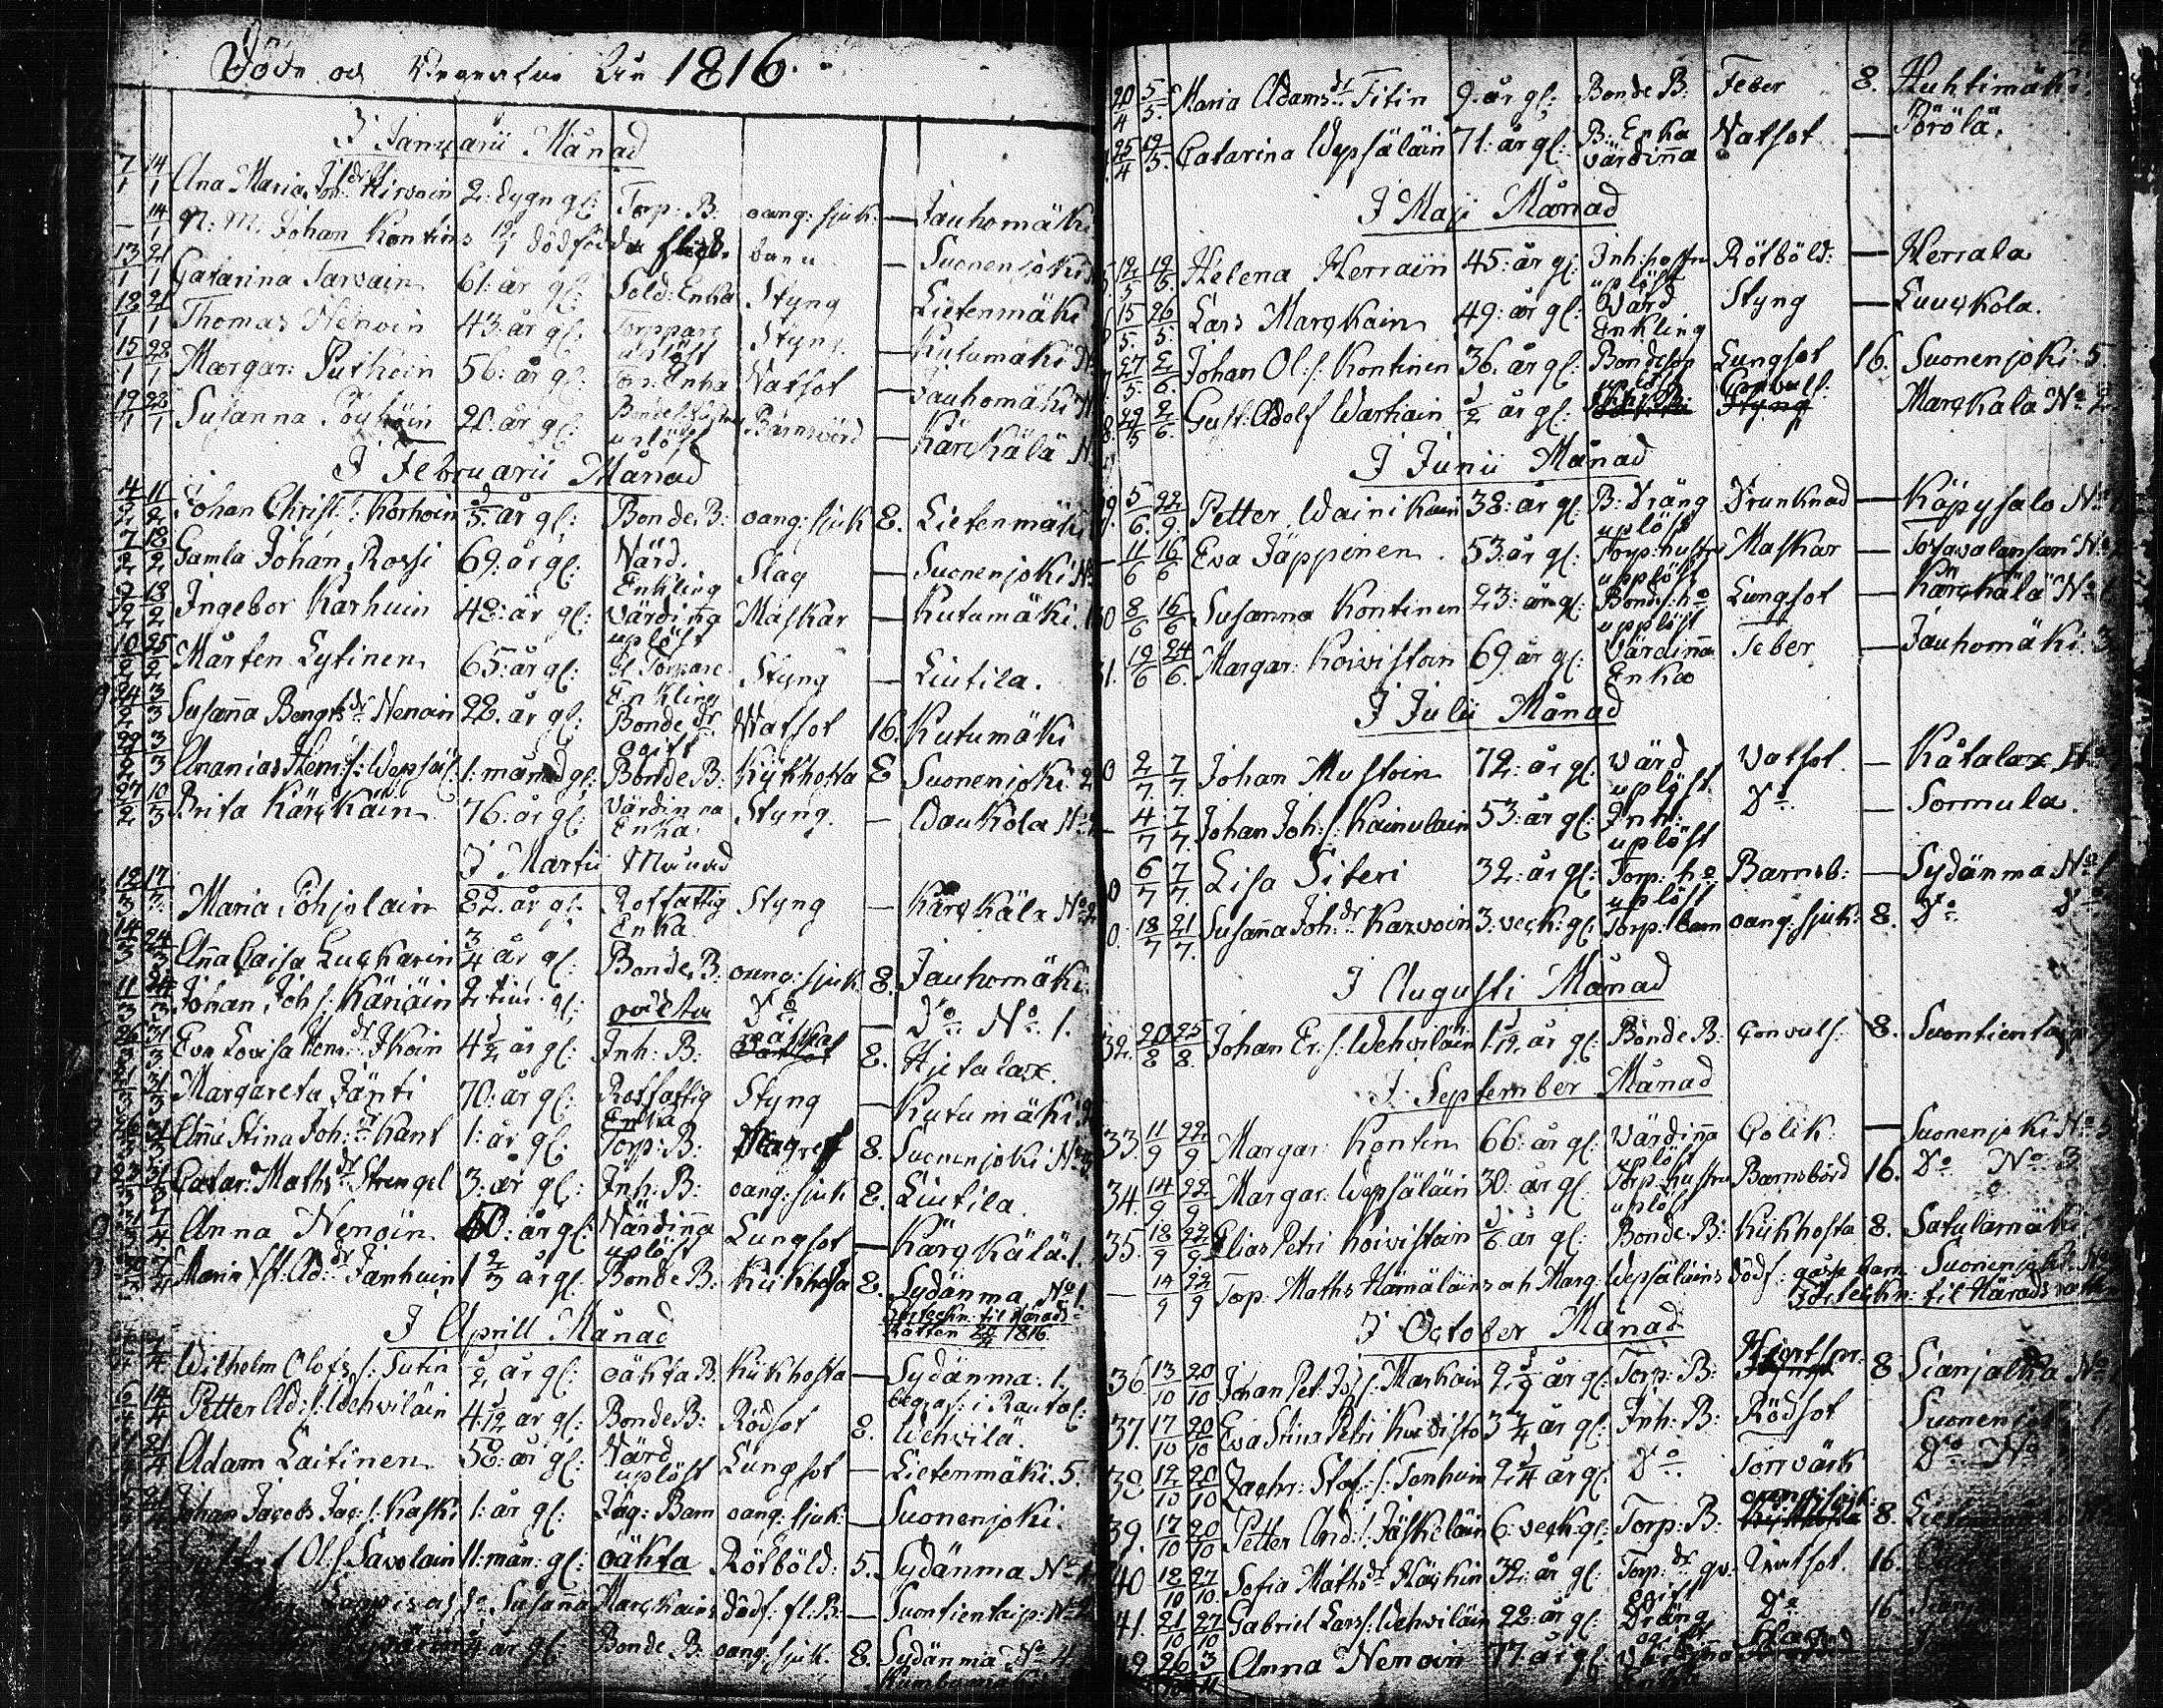 Döde och Begrafne År 1816.
I Januarii Månad
7/1 14/1 Ana Maria Joh: dr Hirvoin 2: dygn gl: Torp: B. oang: sjuk. — Jauhomäki
— 14/1 N: M. Johan Kontins 12/1 dödfödda barn — Suonenjoki
13/1 21/1 Catarina Tarvain 61: år gl: Sold: Enka Styng Lietenmäki
18/1 21/1 Thomas Nenoin 43: år gl: Torppare uplöst Styng — Kutumäki
15/1 28/1 Margar: Putkoin 56: år gl: Tor: Enka Vatsot — Jauhomäki
19/1 28/1 Susanna 20: år gl: uplöst Barnsbörd — Kärckälä N:
I Februarii Månad
4/2 11/2 Johan Christ: s: Korhoin 1/5: år gl: Bonde B: oang: sjuk 8. Lietenmäki
7/2 18/2 Gamla Johan Rossi 69: år gl: Värd. Enkling Slag — Suonenjoki N:
7/2 18/2 Ingebor Karhuin 48: år gl: Värdinna uplöst Maskar — Kutumäki.
10/2 25/2 Mårten Lytinen 65: år gl: Gl. Torpare Enkling Styng — Liutila.
24/2 3/3 Susanna Bengts dr Nenoin 22. år gl: Bonde dr ogift Vatsot 16. Kutumäki
29/2 3/3 Ananias Henr: s: Wepsäl: 1: månad gl: Bonde B: Kikhosta 8 Suonenjoki: 2
27/2 10/3 Brita Kärckäin 76: år gl: Värdinna Enka Styng. — Waukola N:
I Martii Månad
12/3 17/3 Maria Pohjolain 82. år gl. Rotfattig Enka Styng — Kärckälä No 2
14/3 24/3 Anna Caisa Luckarin 3/4 år gl: Bonde B: oang: sjuk 8. Jauhomäki
11/3 24/3 Johan Joh: s: Käriäin 2 tim: gl: oäkta Do — Do No 1.
26/3 31/3 Eva Lovisa Henr: dr Ikoin 4 1/2 år gl: Inh: B: 8. Hjetalax.
21/3 31/3 Margareta Jänti 70: år gl: Rotfattig Enka Styng — Kutumäki
26/3 31/3 Anna Stina Joh: dr Kant 1: år gl: Torp: B: Magref 8. Suonenjoki N:
23/3 31/3 Catar: Maths dr Strengel 3: år gl: Inh: B: oang: sjuk 8. Liutila.
31/3 7/4 Anna Nenoin 50: år gl: Värdinna uplöst Lungsot — Kärckälä. 1.
30/3 7/4 Maria Ad: dr Janhuin 1 2/3 år gl: Bonde B: Kikhosta 8. Sydänma No 1.
Förteckn: til Härads Rätten 1816.
I Aprill Månad
Wilhelm Olofs: s: Sutin 1/2 år gl: oäkta B. Kikhosta — Sydänma: 1.
6/4 14/4 Petter Ad: s: Wehviläin 4 1/12 år gl: Bonde B: Rödsot 8. begraf: i Rautal: Wehvilä.
Adam Laitinen 58: år gl: Värd uplöst Lungsot — Lietenmäki. 5.
Johan Jacobs Jac: s: Kaski 1: år gl: Jäg: Barn oang: sjuk: — Suonenjoki.
Ol: s: Savolain 11: mån: gl: oäkta Rötböld: 5. Sydänma No
Susanna Marckains Dödf: fl: B: — Suontientaip: No 2
år gl: Bonde B: oang: sjuk. 8. Sydänma No 4
20/4 5/5 Maria Adams dr Titin 9. år gl: Bonde B: Feber 8. Huhtimäki
25/4 19/5 Catarina Wepsäläin 71: år gl: B: Enka värdinna Vatsot — Pörölä.
I Maji Månad
12/5 19/5 Helena Herrain 45: år gl: Inh: hustru uplöst Rötböld: — Herrala
15/5 26/5 Lars Marckain 49: år gl: Värd Enkling Styng — Luuckola.
27/5 2/6 Johan Ol: s: Kontinen 36. år gl: Bondeson uplöst Lungsot 16. Suonenjoki 5
29/5 2/6 Gust: Adolf Wartiain 1/2 år gl: Convuls: Marckala No 2
I Junii Månad
5/6 22/9 Petter Wainikain 38: år gl: B: Dräng uplöst Drunknad — Käpysalo No
— 11/6 16/6 Eva Jäppinen 53: år gl: Torp: hustru upplöst Maskar — Toravalansari No
30 8/6 16/6 Susanna Kontinen 23: år gl: Bondes: ho upplöst Lungsot — Kärckälä No
31. 19/6 24/6 Margar: Koivistoin 69 år gl: Värdinna Enka Feber — Jauhomäki: 3
I Julii Månad
2/7 7/7 Johan Mustoin 72: år gl: Värd uplöst Vatsot. — Kåtalax
4/7 7/7 Johan Joh: s: Kainulain 53: år gl: Inh: uplöst Do — Sormula.
6/7 7/7 Lisa Siteri 32: år gl: Torp: ho uplöst Barnsb: — Sydänma No 1
18/7 21/7 Susanna Joh: dr Karvoin 3: veck: gl: Torp: barn oang: sjuk: 8. Do Do
I Augusti Månad
32. 20/8 25/8 Johan Er: s: Wehviläin 1 1/12 år gl: Bonde B: Convuls: 8. Suontientaip
I September Månad
33. 11/9 22/9 Margar: Kontin 66: år gl: Värdinna uplöst Colik: — Suonenjoki No
34. 14/9 22/9 Margar: Wepsäläin 30: år gl: Torp: hustru uplöst Barnsbörd 16. Do No 3
35. 18/9 22/9 Elias Petri Koivistoin 1/6 år gl: Bonde B: Kikhosta 8. Satulamäki
— 14/9 22/9 Torp: Maths Hämäläins och Marg: Wepsäläins Dödf: gåsse barn Suonenjoki No
Förteckn: til Häradsrätten
I October Månad
36. 13/10 20/10 Johan Pet: s: Markain 2 1/2 år gl: Torp: B: 8 Sianjalka No
37. 17/10 20/10 Eva Stina Petri Kuivisto 3 3/4 år gl: Inh: B: Rödsot Suonenjoki 1
38 12/10 20/10 Zachr: Stef: s: Tenhuin 2 1/4 år gl: Do Torrvärk Do No
39. 17/10 20/10 Petter And: s: Jäskeläin 6: veck: gl: Torp: B: oang: sjuk 8.
40 18/10 27/10 Sofia Maths dr Häckin 32: år gl: Torp: dr ogift Vatsot. 16.
41. 21/10 27/10 Gabriel Lars s: Wehviläin 22: år gl: Dräng ogift Do 16.
26/10 3/11 Anna Nenoin 77: år gl: Värdinna Enka Slag